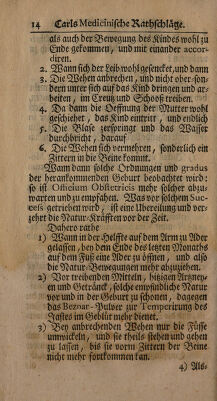 14 Carls Medicinische Rathschläge.
als auch der Bewegung des Kindes wohl zu
Ende gekommen, und mit einander accor-
diren.
2. Wann sich der Leib wohl gesencket, und dann
3. Die Wehen anbrechen, und nicht ober son-
dern unter sich auf das Kind dringen und ar-
beiten, im Creutz und Schooß treiben.
4. Da dann die Oeffnung der Mutter wohl
geschiehet, das Kind eintrit, und endlich
5. Die Blase zerspringt und das Wasser
durchbricht, darauf
6. Die Wehen sich vermehren, sonderlich ein
Zittern in die Beine kommt.
Wann dann solche Ordnungen und gradus
der herankommenden Geburt beobachtet wird:
so ist Officium Obstetricis mehr solcher abzu-
warten und zu empfahen. Was vor solchem Suc-
cess getrieben wird, ist eine Ubereilung und ver-
zehrt die Natur-Kräfften vor der Zeit.
Dahero rathe
1) Wann in der Helffte auf dem Arm zu Ader
gelassen, bey dem Ende des letzten Monaths
auf dem Fuß eine Ader zu öffnen, und also
die Natur-Bewegungen mehr abzuziehen.
2) Vor treibenden Mitteln, hitzigen Artzney-
en und Getränck, solche empfindliche Natur
vor und in der Geburt zu schonen, dagegen
das Bezoar-Pulver zur Temperirung des
Jastes im Geblüt mehr dienet.
3) Bey anbrechenden Wehen nur die Füsse
umwickeln, und sie theils stehen und gehen
zu lassen, bis sie vorm Zittern der Beine
nicht mehr fortkommen kan.
4) Als-